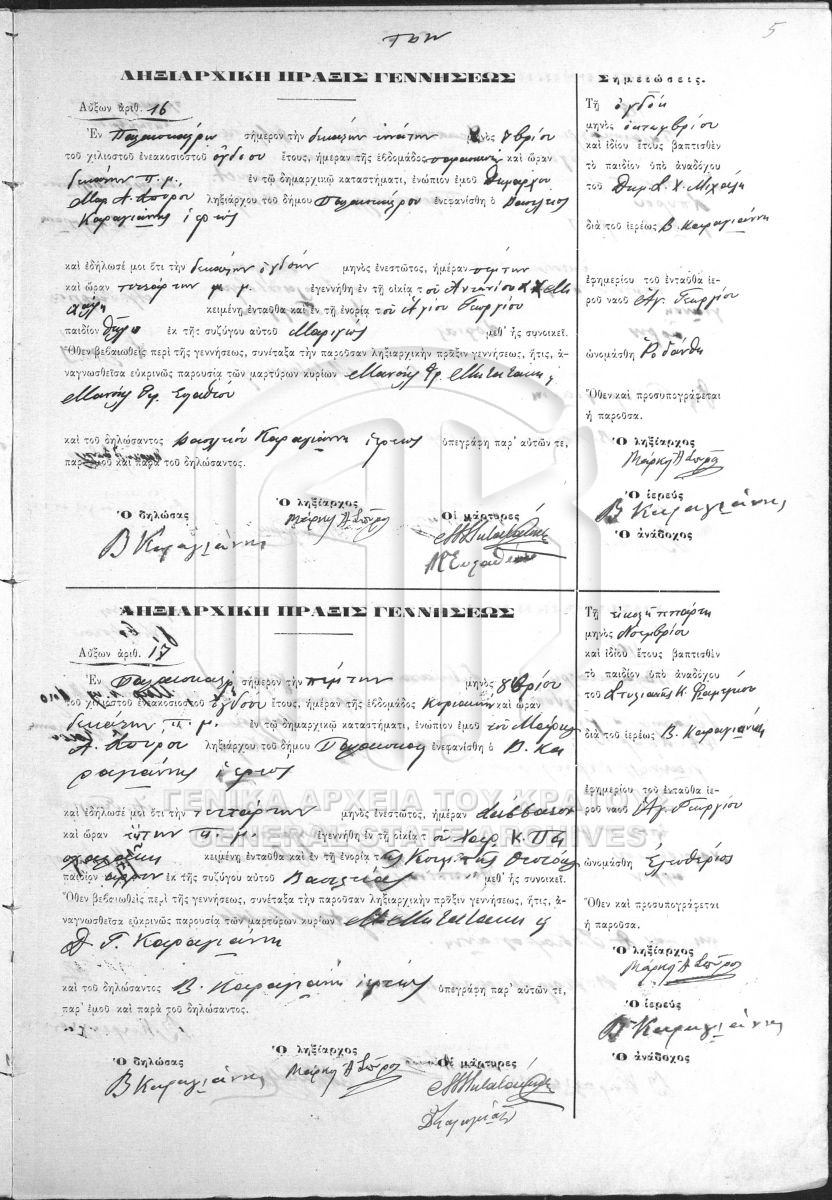 5
ΛΗΞΙΑΡΧΙΚΗ ΠΡΑΞΙΣ ΓΕΝΝΗΣΕΩΣ
Αὔξων ἀριθ. 16
Ἐν σήμερον τὴν δεκάτην ἐνάτην μηνὸς 7βρίου
τοῦ χιλιοστοῦ ἐνεακοσιοστοῦ ὀγδόου ἔτους, ἡμέραν τῆς ἑβδομάδος καὶ ὥραν
δεκάτην π. μ. ἐν τῷ δημαρχικῷ καταστήματι, ἐνώπιον ἐμοῦ Δημάρχου
Μαρ. Α. Σπύρου ληξιάρχου τοῦ δήμου ἐνεφανίσθη ὁ Βασίλειος
Καραγιάννης ἱερεὺς
καὶ ἐδήλωσέ μοι ὅτι τὴν δεκάτην ὀγδόην μηνὸς ἐνεστῶτος, ἡμέραν πέμπτην
καὶ ὥραν τετάρτην μ. μ. ἐγεννήθη ἐν τῇ οἰκίᾳ τοῦ
κειμένη ἐνταῦθα καὶ ἐν τῇ ἐνορίᾳ τοῦ Ἁγίου Γεωργίου
παιδίον θῆλυ ἐκ τῆς συζύγου αὐτοῦ Μαριγῶς μεθ᾽ ἧς συνοικεῖ.
Ὅθεν βεβαιωθεὶς περὶ τῆς γεννήσεως, συνέταξα τὴν παροῦσαν ληξιαρχικὴν πρᾶξιν γεννήσεως, ἥτις, ἀ-
ναγνωσθεῖσα εὐκρινῶς παρουσίᾳ τῶν μαρτύρων κυρίων Μανόλη
Μανόλη
καὶ τοῦ δηλώσαντος Βασιλείου Καραγιάννη ἱερέως ὑπεγράφη παρ᾽ αὐτῶν τε,
παρ᾽ ἐμοῦ καὶ παρὰ τοῦ δηλώσαντος.
Ὁ δηλώσας
Β Καραγιάννης
Ὁ ληξίαρχος
Μάρκος Α Σπύρου
Οἱ μάρτυρες
Σημειώσεις.
Τῇ ὀγδόῃ
μηνὸς ὀκτωβρίου
καὶ ἰδίου ἔτους βαπτισθὲν
τὸ παιδίον ὑπὸ ἀναδόχου
τοῦ
διὰ τοῦ ἱερέως Β. Καραγιάννη
ἐφημερίου τοῦ ἐνταῦθα ἱε-
ροῦ ναοῦ Ἁγ. Γεωργίου
ὠνομάσθη Ροδάνθη
Ὅθεν καὶ προσυπογράφεται
ἡ παροῦσα.
Ὁ ληξίαρχος
Μάρκος Α Σπύρου
Ὁ ἱερεύς
Β Καραγιάννης
Ὁ ἀνάδοχος
ΛΗΞΙΑΡΧΙΚΗ ΠΡΑΞΙΣ ΓΕΝΝΗΣΕΩΣ
Αὔξων ἀριθ. 17
Ἐν σήμερον τὴν πέμπτην μηνὸς 8βρίου
τοῦ χιλιοστοῦ ἐνεακοσιοστοῦ ὀγδόου ἔτους, ἡμέραν τῆς ἑβδομάδος Κυριακὴν καὶ ὥραν
δεκάτην π. μ. ἐν τῷ δημαρχικῷ καταστήματι, ἐνώπιον ἐμοῦ τοῦ Μάρκου
Α. Σπύρου ληξιάρχου τοῦ δήμου ἐνεφανίσθη ὁ Β. Κα
ραγιάννης ἱερεὺς
καὶ ἐδήλωσέ μοι ὅτι τὴν τετάρτην μηνὸς ἐνεστῶτος, ἡμέραν Σάββατον
καὶ ὥραν π. μ. ἐγεννήθη ἐν τῇ οἰκίᾳ τοῦ
κειμένη ἐνταῦθα καὶ ἐν τῇ ἐνορίᾳ τῆς Κοιμ. τῆς Θεοτόκου
παιδίον ἐκ τῆς συζύγου αὐτοῦ Βασιλείας μεθ᾽ ἧς συνοικεῖ.
Ὅθεν βεβαιωθεὶς περὶ τῆς γεννήσεως, συνέταξα τὴν παροῦσαν ληξιαρχικὴν πρᾶξιν γεννήσεως, ἥτις, ἀ-
ναγνωσθεῖσα εὐκρινῶς παρουσίᾳ τῶν μαρτύρων κυρίων
Δ. Γ. Καραγιάννη
καὶ τοῦ δηλώσαντος Β. Καραγιάννη ἱερέως ὑπεγράφη παρ᾽ αὐτῶν τε,
παρ᾽ ἐμοῦ καὶ παρὰ τοῦ δηλώσαντος.
Ὁ δηλώσας
Β Καραγιάννης
Ὁ ληξίαρχος
Μάρκος Α Σπύρου
Οἱ μάρτυρες
Τῇ εἰκοστῇ τετάρτῃ
μηνὸς Νοεμβρίου
καὶ ἰδίου ἔτους βαπτισθὲν
τὸ παιδίον ὑπὸ ἀναδόχου
διὰ τοῦ ἱερέως Β. Καραγιάννη
ἐφημερίου τοῦ ἐνταῦθα ἱε-
ροῦ ναοῦ Ἁγ. Γεωργίου
ὠνομάσθη Ἐλευθέριος
Ὅθεν καὶ προσυπογράφεται
ἡ παροῦσα.
Ὁ ληξίαρχος
Μάρκος Α Σπύρου
Ὁ ἱερεύς
Β Καραγιάννης
Ὁ ἀνάδοχος
ΓΕΝΙΚΑ ΑΡΧΕΙΑ ΤΟΥ ΚΡΑΤΟΥΣ
GENERAL STATE ARCHIVES